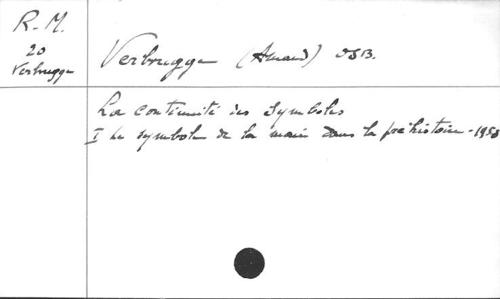 R. M.
20
Verbrugge
Verbrugge (Amand) OSB.
La continuité des symboles
I Le symbole de la main dans la préhistoire - 1958